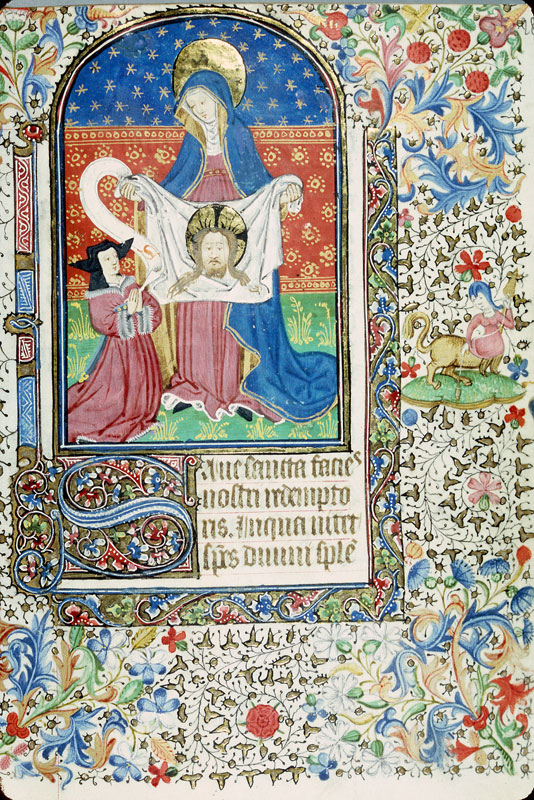 Salue sancta facies
nostri redempto
ris. In qua nitet
sp̄es diuini splē